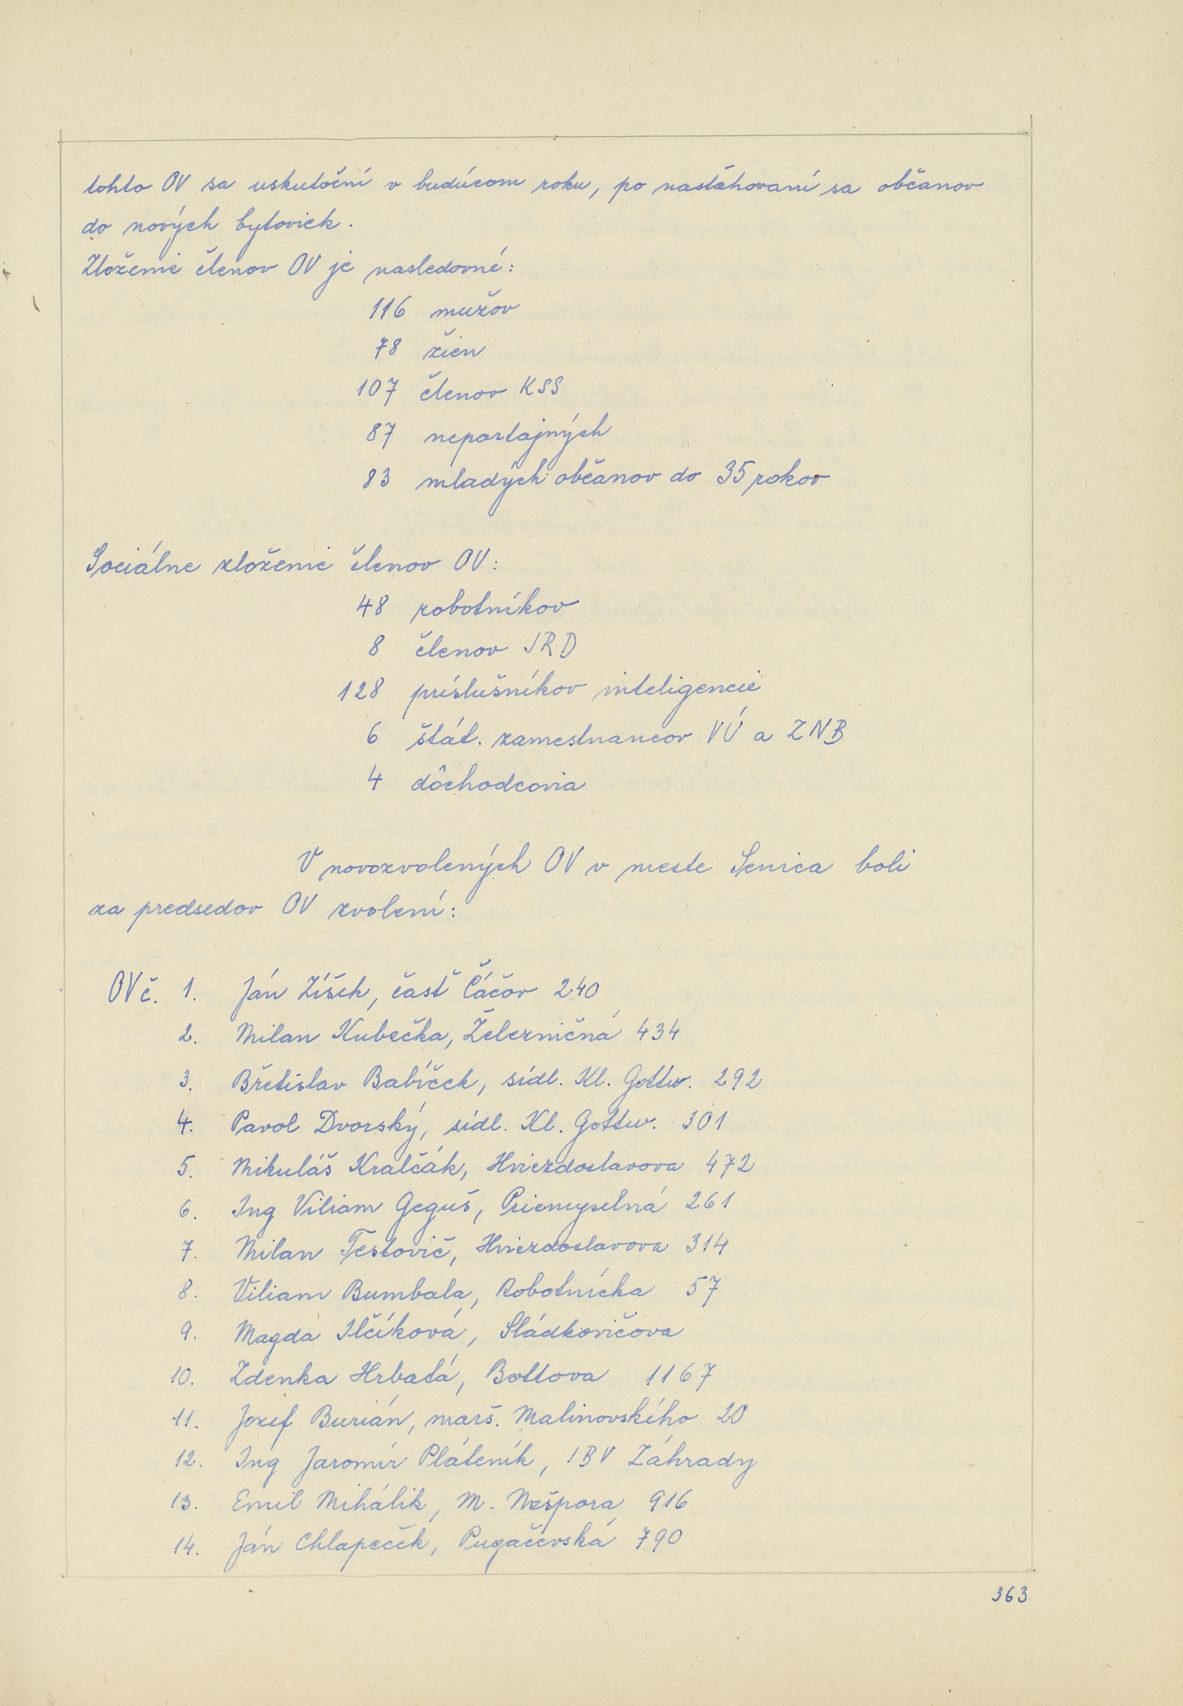 tohto OV sa uskutoční v budúcom roku, po nasťahovaní sa občanov
do nových bytoviek.
Zloženie členov OV je nasledovné:
116 mužov
78 žien
107 členov KSS
87 nepartajných
83 mladých občanov do 35 rokov
Sociálne zloženie členov OV:
48 robotníkov
8 členov JRD
128 príslušníkov inteligencie
6 štát. zamestnancov VÚ a ZNB
4 dôchodcovia
V novozvolených OV v meste Senica boli
za predsedov OV zvolení:
OV č. 1. Ján Zíšek, časť Čáčov 240
2. Milan Kubečka, Železničná 434
3. Břetislav Babíček, sídl. Kl. Gottw. 292
4. Pavol Dvorský, sídl. Kl. Gottw. 301
5. Mikuláš Kralčák, Hviezdoslavova 472
6. Ing Viliam Geguš, Priemyselná 261
7. Milan Testovič, Hviezdoslavova 314
8. Viliam Bumbala, Robotnícka 57
9. Magda Ilčíková, Sládkovičova
10. Zdenka Hrbatá, Bottova 1167
11. Jozef Burián, marš. Malinovského 20
12. Ing Jaromír Pláteník, IBV Záhrady
13. Emil Mihálik, M. Nešpora 916
14. Ján Chlapeček, Pugačevská 790
363